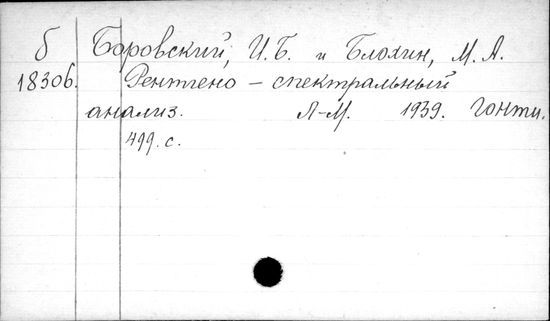 Б Боровский, И.Б. и Блохин, М.А.
18306. Рентгено – спектральный
анализ. Л-М. 1939. ГОНТИ.
499. с.